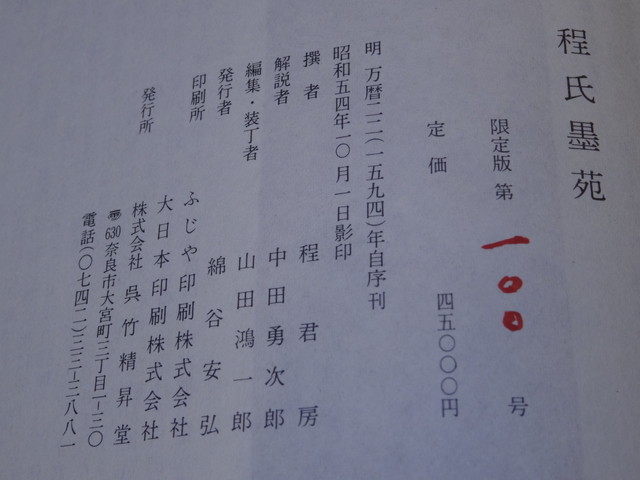 程氏墨苑
限定版 第 一〇〇 号
定価 四五〇〇〇円
明 万暦二二(一五九四)年自序刊
昭和五四年一〇月一日影印
撰者 程君房
解説者 中田勇次郎
編集・装丁者 山田鴻一郎
発行者 綿谷安弘
印刷所 ふじや印刷株式会社
大日本印刷株式会社
発行所 株式会社 呉竹精昇堂
〠630 奈良市大宮町三丁目一-三〇
電話(〇七四二)三三-三八八一